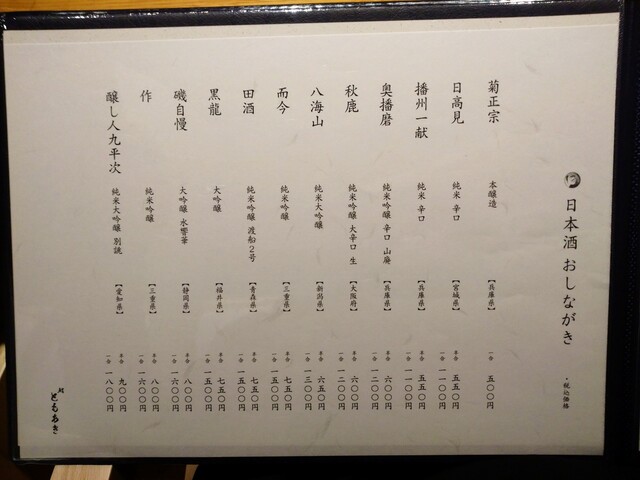 日本酒 おしながき
・税込価格
菊正宗 本醸造 【兵庫県】 一合 五〇〇円
日高見 純米 辛口 【宮城県】 半合 五五〇円 一合 一一〇〇円
播州一献 純米 辛口 【兵庫県】 半合 五五〇円 一合 一一〇〇円
奥播磨 純米吟醸 辛口 山廃 【兵庫県】 半合 六〇〇円 一合 一二〇〇円
秋鹿 純米吟醸 大辛口 生 【大阪府】 半合 六〇〇円 一合 一二〇〇円
八海山 純米大吟醸 【新潟県】 半合 六五〇円 一合 一三〇〇円
而今 純米吟醸 【三重県】 半合 七五〇円 一合 一五〇〇円
田酒 純米吟醸 渡船2号 【青森県】 半合 七五〇円 一合 一五〇〇円
黒龍 大吟醸 【福井県】 半合 七五〇円 一合 一五〇〇円
磯自慢 大吟醸 水響華 【静岡県】 半合 八〇〇円 一合 一六〇〇円
作 純米吟醸 【三重県】 半合 八〇〇円 一合 一六〇〇円
醸し人九平次 純米大吟醸 別誂 【愛知県】 半合 九〇〇円 一合 一八〇〇円
ともあき